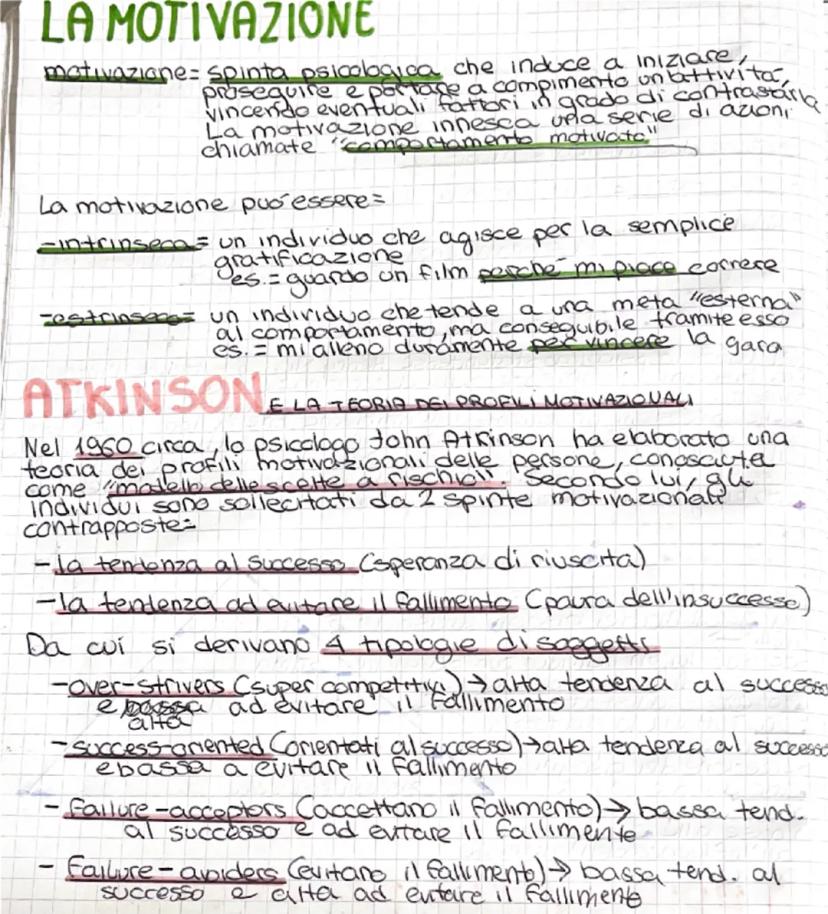 LA MOTIVAZIONE
motivazione= spinta psicologica che induce a iniziare,
proseguire e portare a compimento un'attività,
vincendo eventuali fattori in grado di contrastarla
La motivazione innesca una serie di azioni
chiamate "comportamento motivato"
La motivazione può essere=
-intrinseca= un individuo che agisce per la semplice
gratificazione
es.= guardo un film perché mi piace correre
-estrinseca= un individuo che tende a una meta "esterna"
al comportamento, ma conseguibile tramite esso
es.= mi alleno duramente per vincere la gara
ATKINSON E LA TEORIA DEI PROFILI MOTIVAZIONALI
Nel 1960 circa, lo psicologo John Atkinson ha elaborato una
teoria dei profili motivazionali delle persone, conosciuta
come "modello delle scelte a rischio". Secondo lui, gli
individui sono sollecitati da 2 spinte motivazionali
contrapposte=
-la tendenza al successo (speranza di riuscita)
-la tendenza ad evitare il fallimento (paura dell'insuccesso)
Da cui si derivano 4 tipologie di soggetti
-over-strivers (super competitivi)→alta tendenza al successo
e bassa ad evitare il fallimento
alta
-success-oriented (orientati al successo)→alta tendenza al successo
e bassa a evitare il fallimento
- failure-acceptors (accettano il fallimento)→ bassa tend.
al successo e ad evitare il fallimento
- failure-avoiders (evitano il fallimento)→ bassa tend. al
successo e alta ad evitare il fallimento